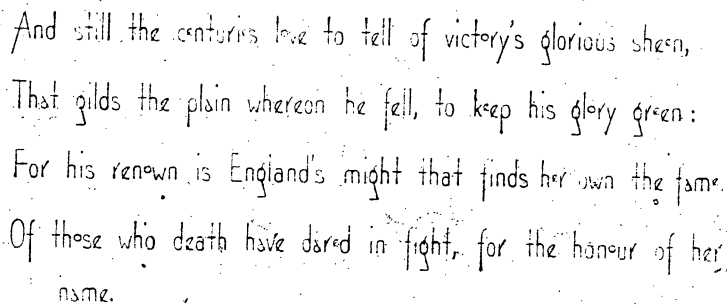 And still the centuries love to tell of victory's glorious sheen,
That gilds the plain whereon he fell, to keep his glory green:
For his renown is England's might that finds her own the fame.
Of those who death have dared in fight, for the honour of her
name.